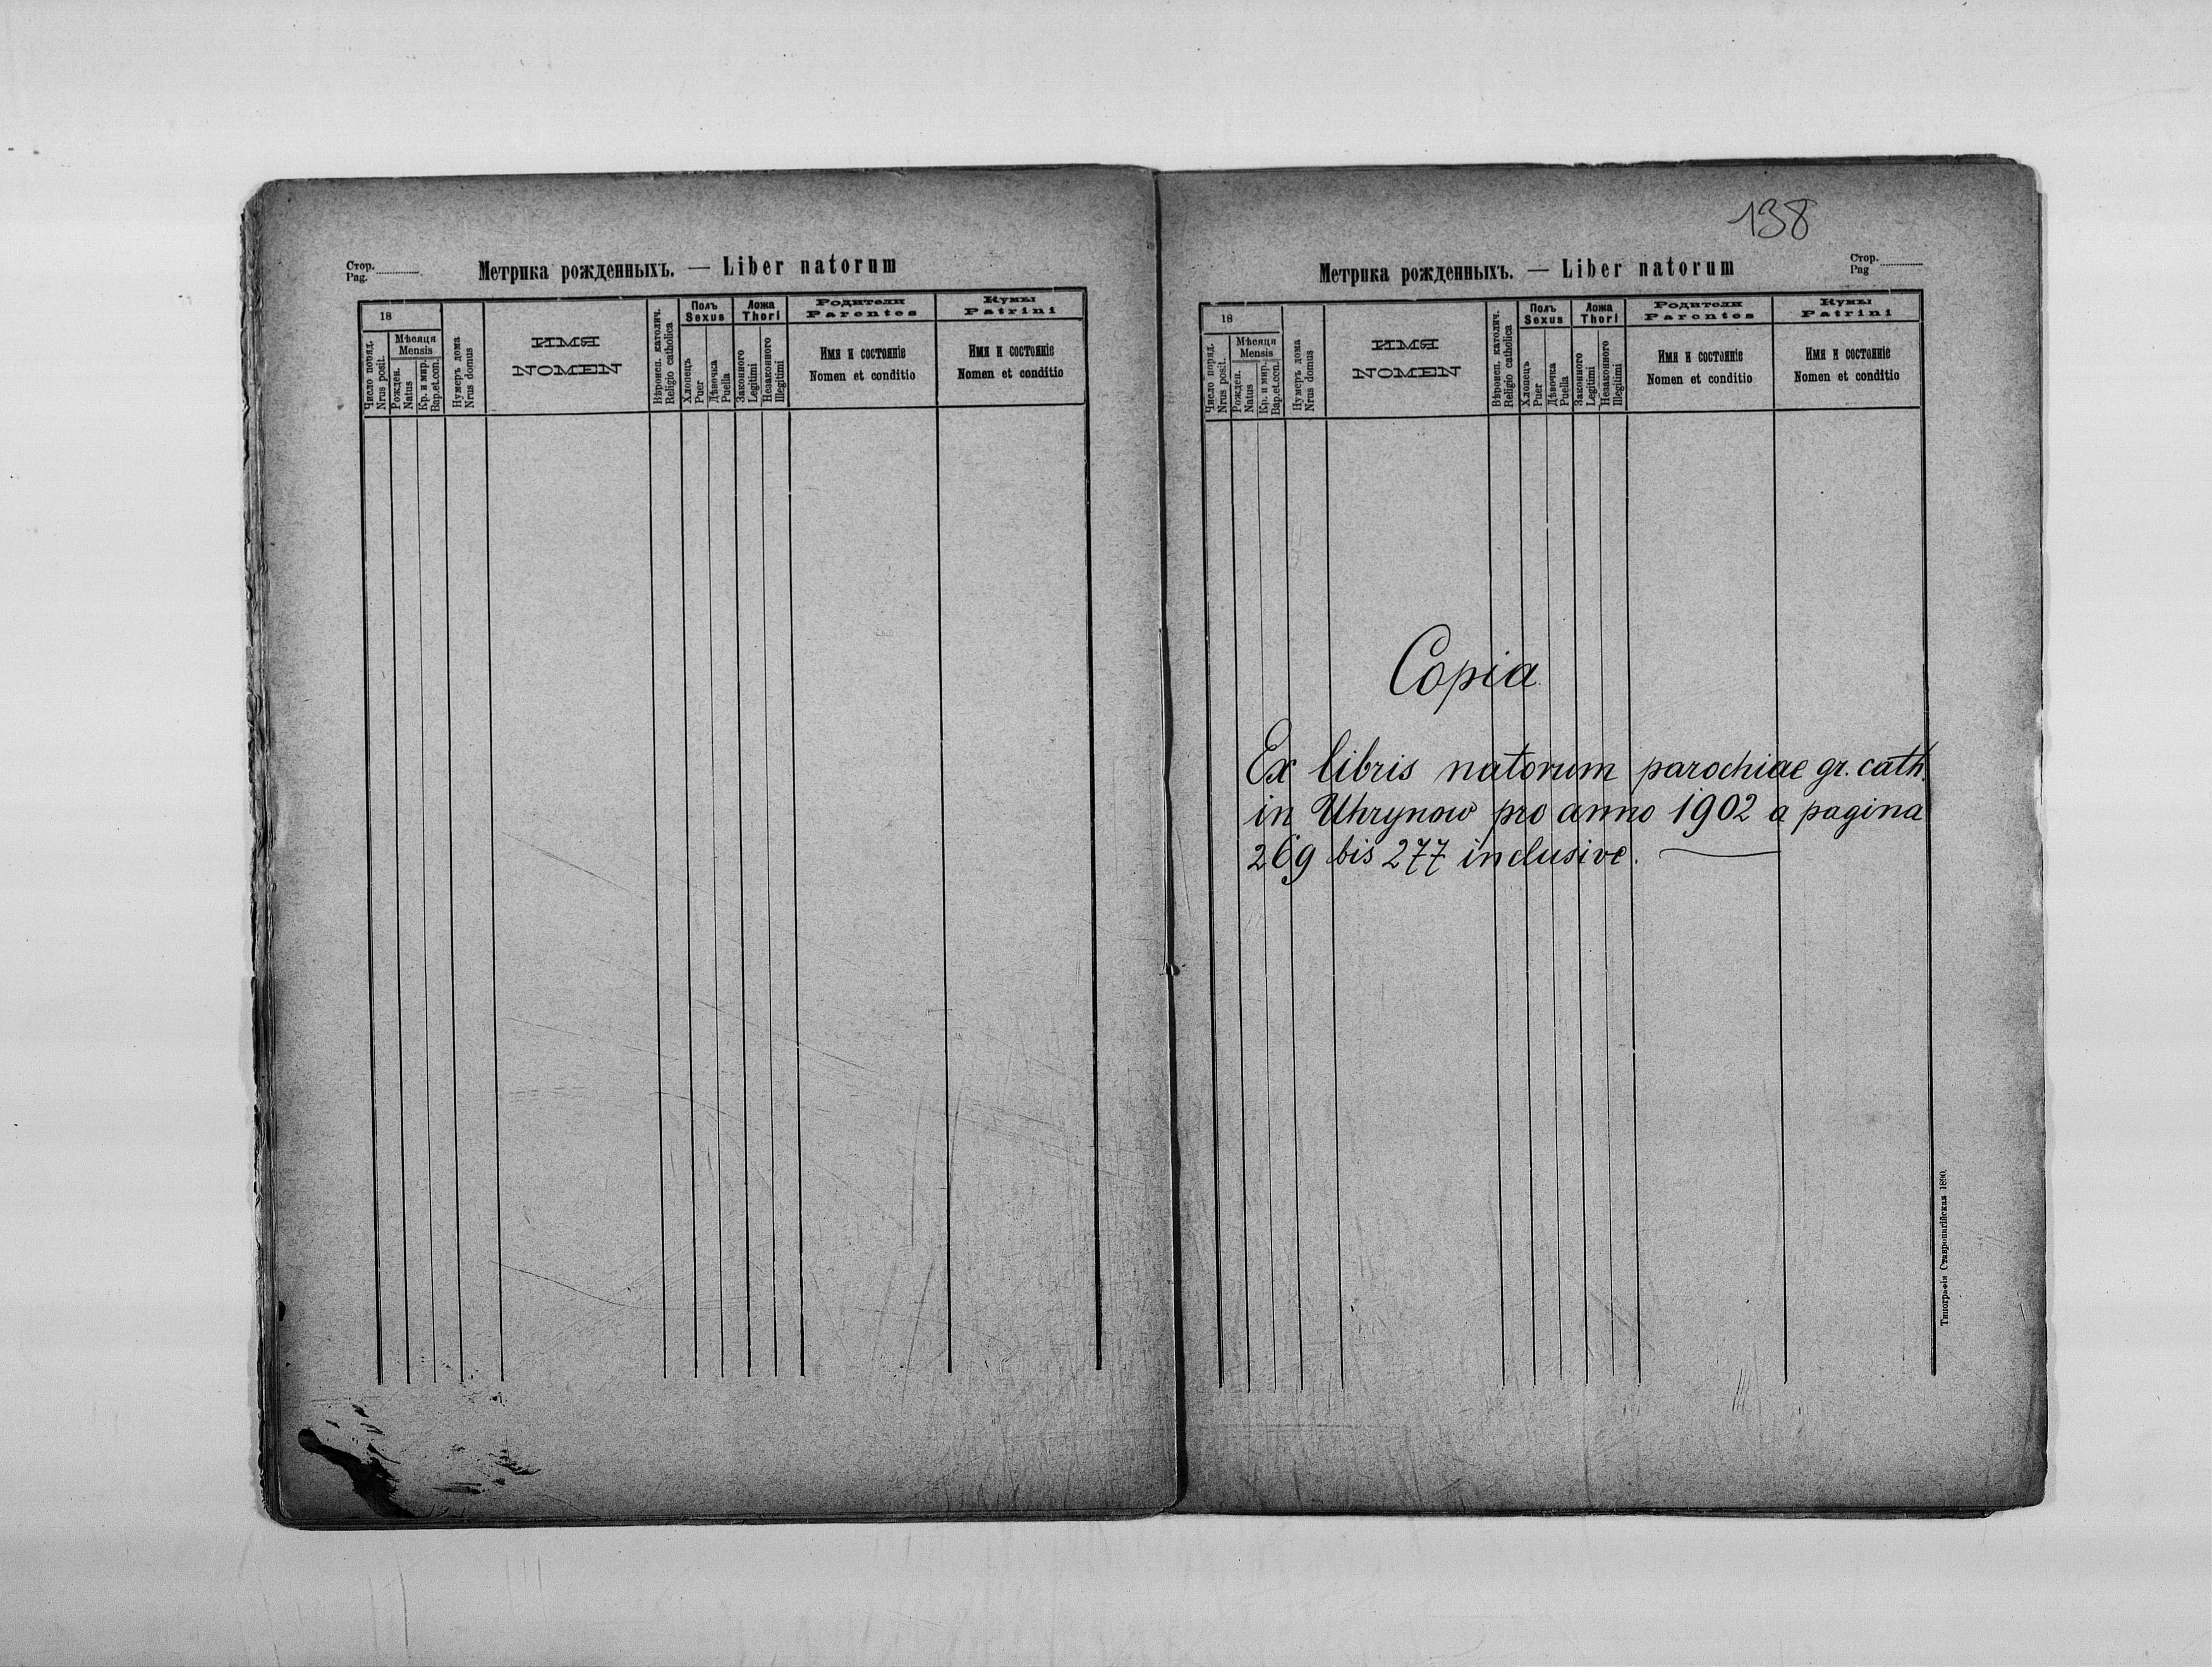 Стор.
Pag.
Метрика рожденныхъ. — Liber natorum
18
Мѣсяця
Mensis
Число поряд.
Nrus posit.
Рожден.
Natus
Кр. и мир.
Bap.et.con.
Нумеръ дома
Nrus domus
ИМЯ
NOMEN
Вѣроисп. католич.
Religio catholica
Полъ
Sexus
Хлопецъ
Puer
Дѣвочка
Puella
Ложа
Thori
Законного
Legitimi
Незаконного
Illegitimi
Родители
Parentes
Имя и состояніе
Nomen et conditio
Кумы
Patrini
Имя и состояніе
Nomen et conditio
138
Метрика рожденныхъ. — Liber natorum
Стор.
Pag
18
Мѣсяця
Mensis
Число поряд.
Nrus posit.
Рожден.
Natus
Кр. и мир.
Bap.et.con.
Нумеръ дома
Nrus domus
ИМЯ
NOMEN
Вѣроисп. католич.
Religio catholica
Полъ
Sexus
Хлопецъ
Puer
Дѣвочка
Puella
Ложа
Thori
Законного
Legitimi
Незаконного
Illegitimi
Родители
Parentes
Имя и состояніе
Nomen et conditio
Кумы
Patrini
Имя и состояніе
Nomen et conditio
Copia
Ex libris natorum parochiae gr. cath.
in Uhrynow pro anno 1902 a pagina
269 bis 277 inclusive.
Типографія Ставропигійская 1890.